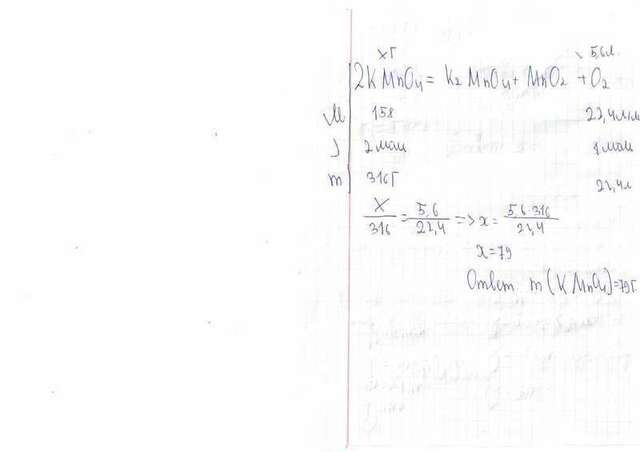 xг 5,6л.
2KMnO4 = K2MnO4 + MnO2 + O2
M 158 22,4л/м
ν 2 мол 1 мол
m 316г 22,4л
x/316 = 5,6/22,4 => x = 5,6·316/22,4
x=79
Ответ m(KMnO4)=79г.